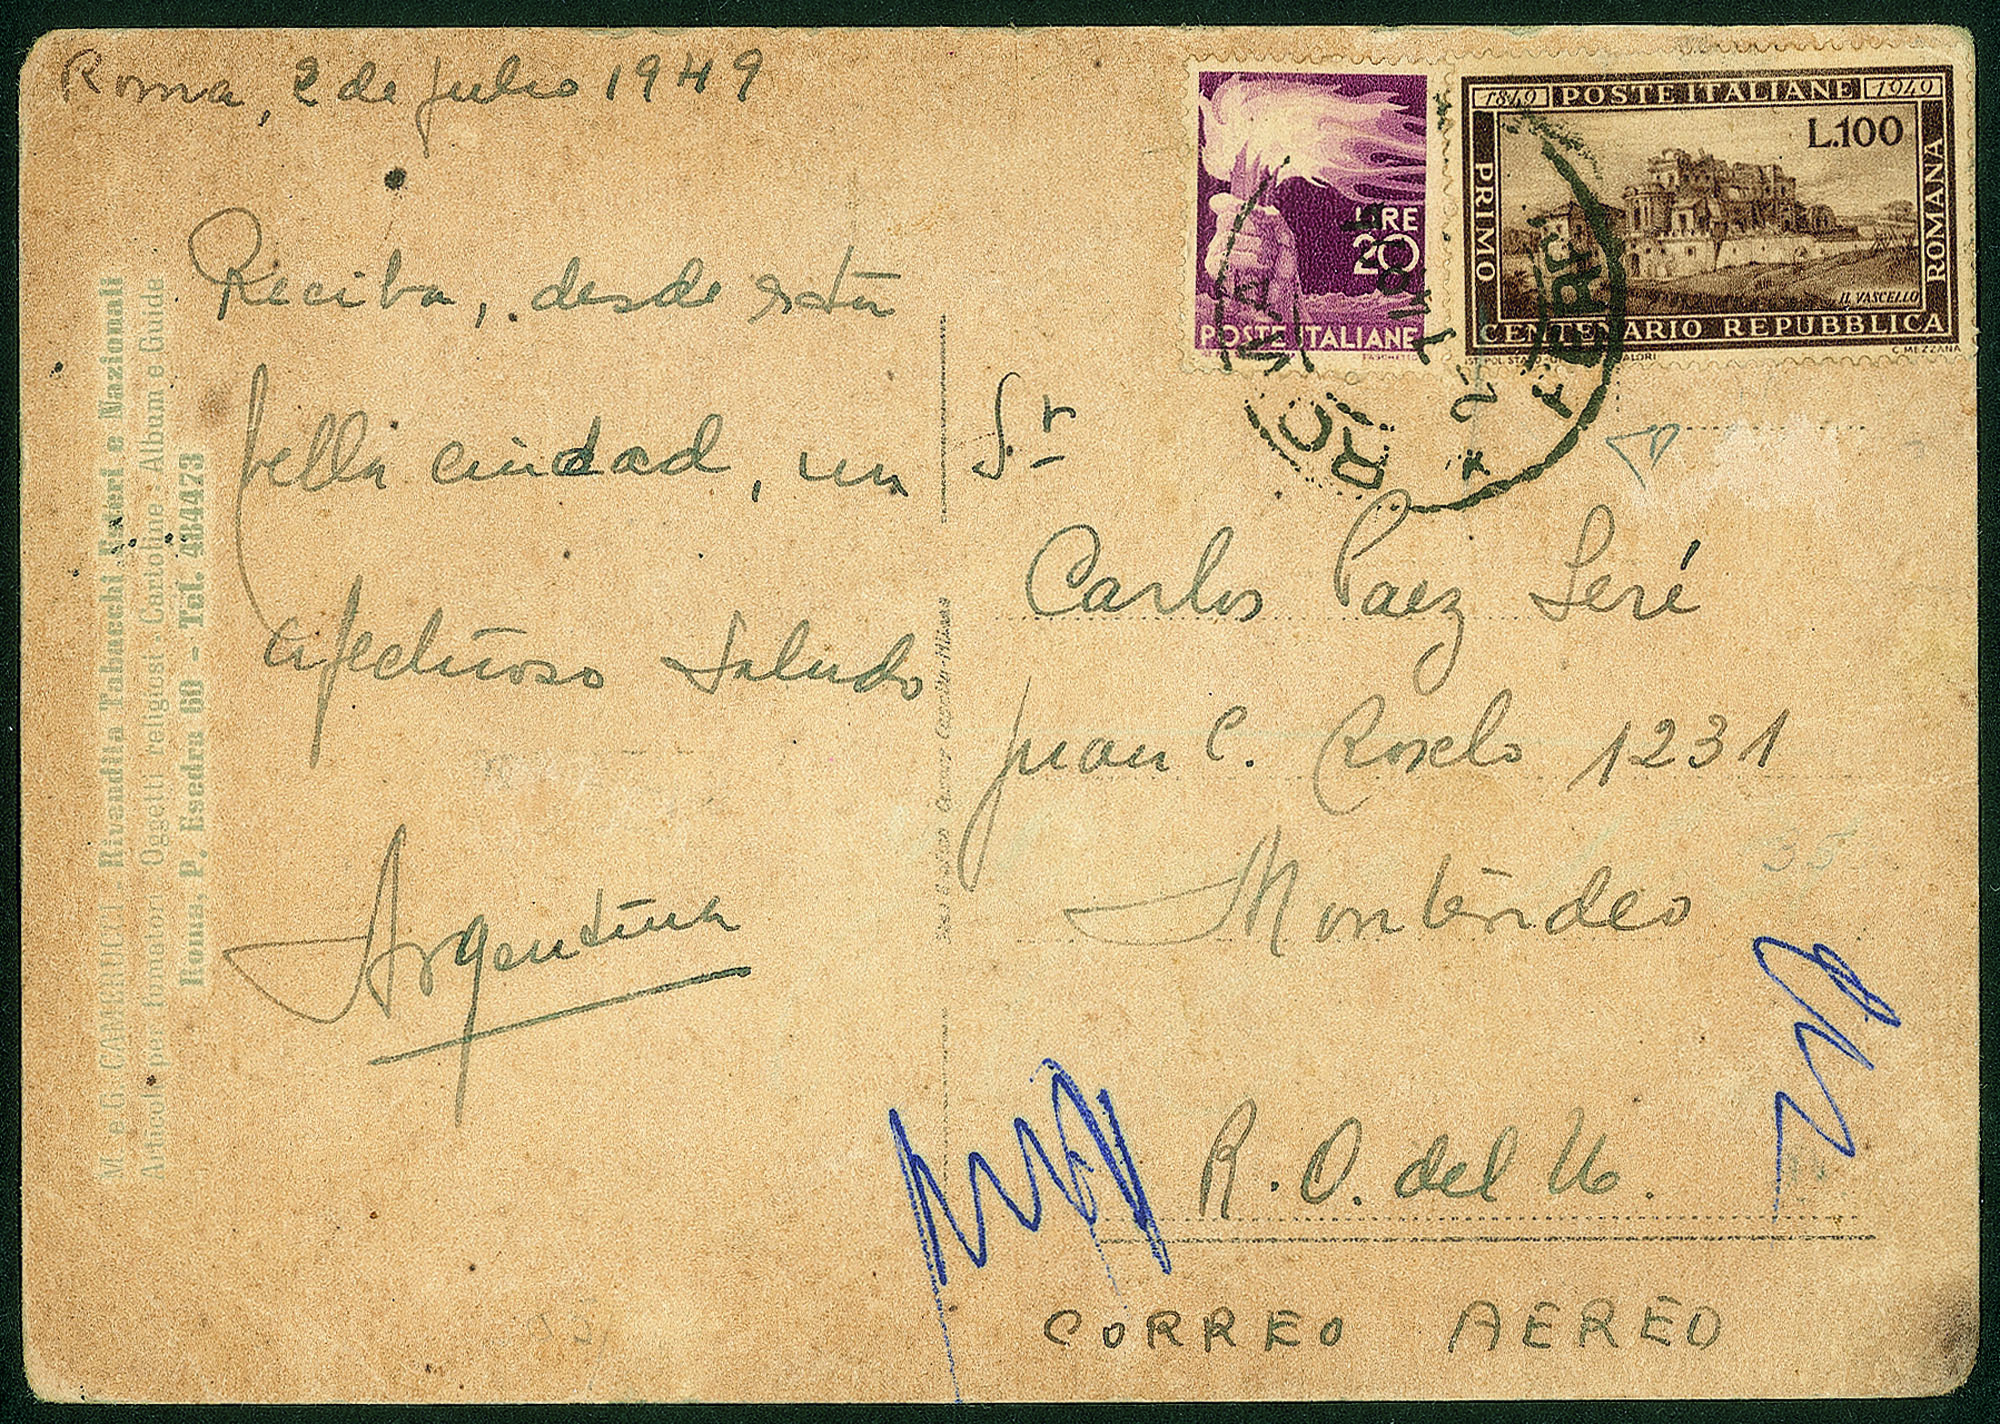 Roma, 2 de julio 1949
Reciba, desde esta
bella ciudad, un
afectuoso saludo
Argentina
M. e G. CAMERUCCI - Rivendita Tabacchi Esteri e Nazionali
Articoli per fumatori - Oggetti religiosi - Cartoline - Album e Guide
Roma, P. Esedra 60 - Tel. 484473
LIRE
20
POSTE ITALIANE
1849 POSTE ITALIANE 1949
L.100
PRIMO
ROMANA
IL VASCELLO
CENTENARIO REPUBBLICA
C. MEZZANA
ROMA
Sr
Carlos Paez Seré
Juan C. Roselo 1231
Montevideo
35
R. O. del U.
CORREO AEREO